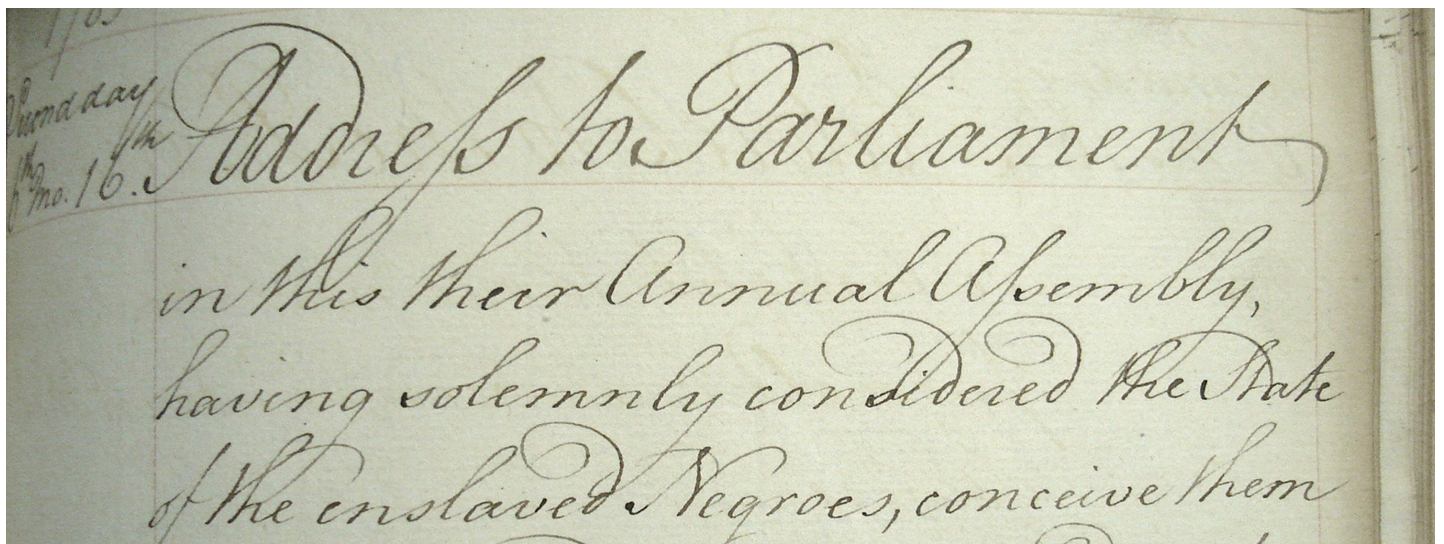 Second day
6th mo. 16th
Address to Parliament
in this their Annual Assembly,
having solemnly considered the State
of the enslaved Negroes, conceive them